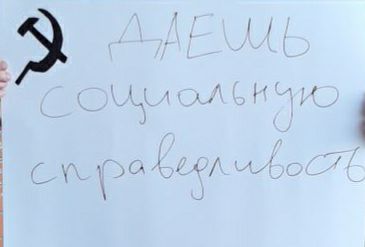 ДАЕШЬ
социальную
справедливость